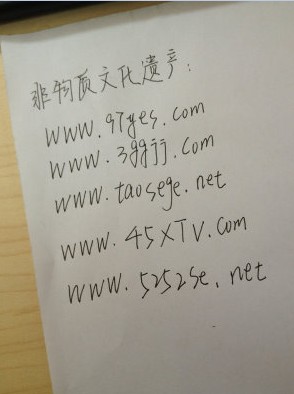 非物质文化遗产:
www.97yes.com
www.39jj.com
www.taosege.net
www.45xTV.com
www.5252se.net